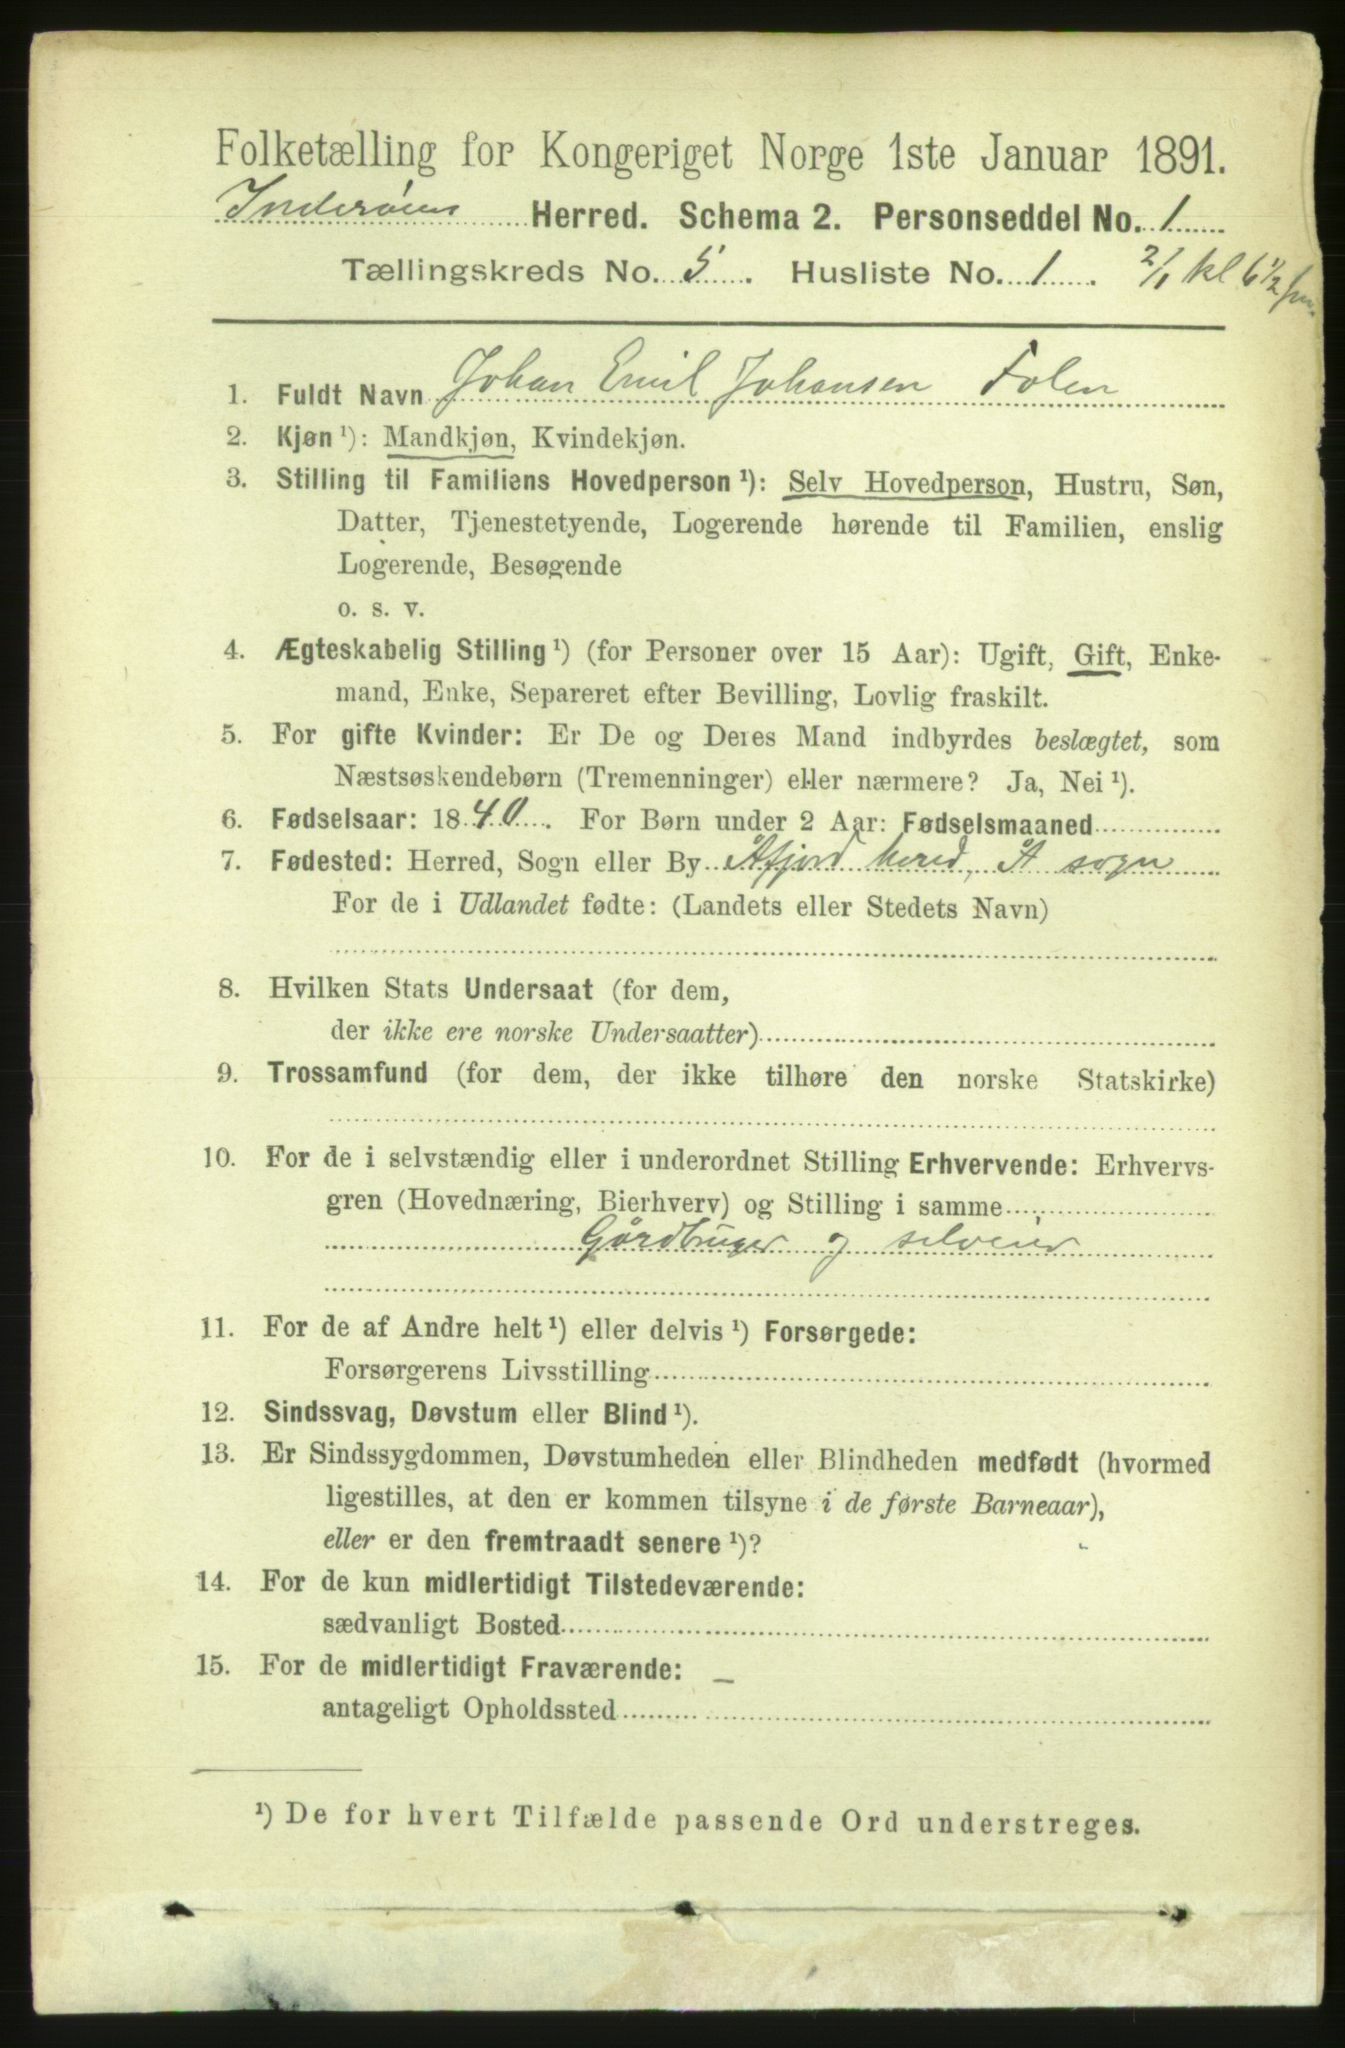 Folketælling for Kongeriget Norge 1ste Januar 1891.
Inderøens Herred. Schema 2. Personseddel No. 1
Tællingskreds No. 5. Husliste No. 1. 2/1 kl 6 1/2 fm.
1. Fuldt Navn Johan Emil Johansen Folen
2. Kjøn ¹): Mandkjøn, Kvindekjøn.
3. Stilling til Familiens Hovedperson ¹): Selv Hovedperson, Hustru, Søn,
Datter, Tjenestetyende, Logerende hørende til Familien, enslig
Logerende, Besøgende
o. s. v.
4. Ægteskabelig Stilling ¹) (for Personer over 15 Aar): Ugift, Gift, Enke-
mand, Enke, Separeret efter Bevilling, Lovlig fraskilt.
5. For gifte Kvinder: Er De og Deres Mand indbyrdes beslægtet, som
Næstsøskendebørn (Tremenninger) eller nærmere? Ja, Nei ¹).
6. Fødselsaar: 1840. For Børn under 2 Aar: Fødselsmaaned
7. Fødested: Herred, Sogn eller By Åfjord herred, Å sogn
For de i Udlandet fødte: (Landets eller Stedets Navn)
8. Hvilken Stats Undersaat (for dem,
der ikke ere norske Undersaatter)
9. Trossamfund (for dem, der ikke tilhøre den norske Statskirke)
10. For de i selvstændig eller i underordnet Stilling Erhvervende: Erhvervs-
gren (Hovednæring, Bierhverv) og Stilling i samme
Gårdbruger og selveier
11. For de af Andre helt ¹) eller delvis ¹) Forsørgede:
Forsørgerens Livsstilling
12. Sindssvag, Døvstum eller Blind ¹).
13. Er Sindssygdommen, Døvstumheden eller Blindheden medfødt (hvormed
ligestilles, at den er kommen tilsyne i de første Barneaar),
eller er den fremtraadt senere ¹)?
14. For de kun midlertidigt Tilstedeværende:
sædvanligt Bosted
15. For de midlertidigt Fraværende: –
antageligt Opholdssted
¹) De for hvert Tilfælde passende Ord understreges.